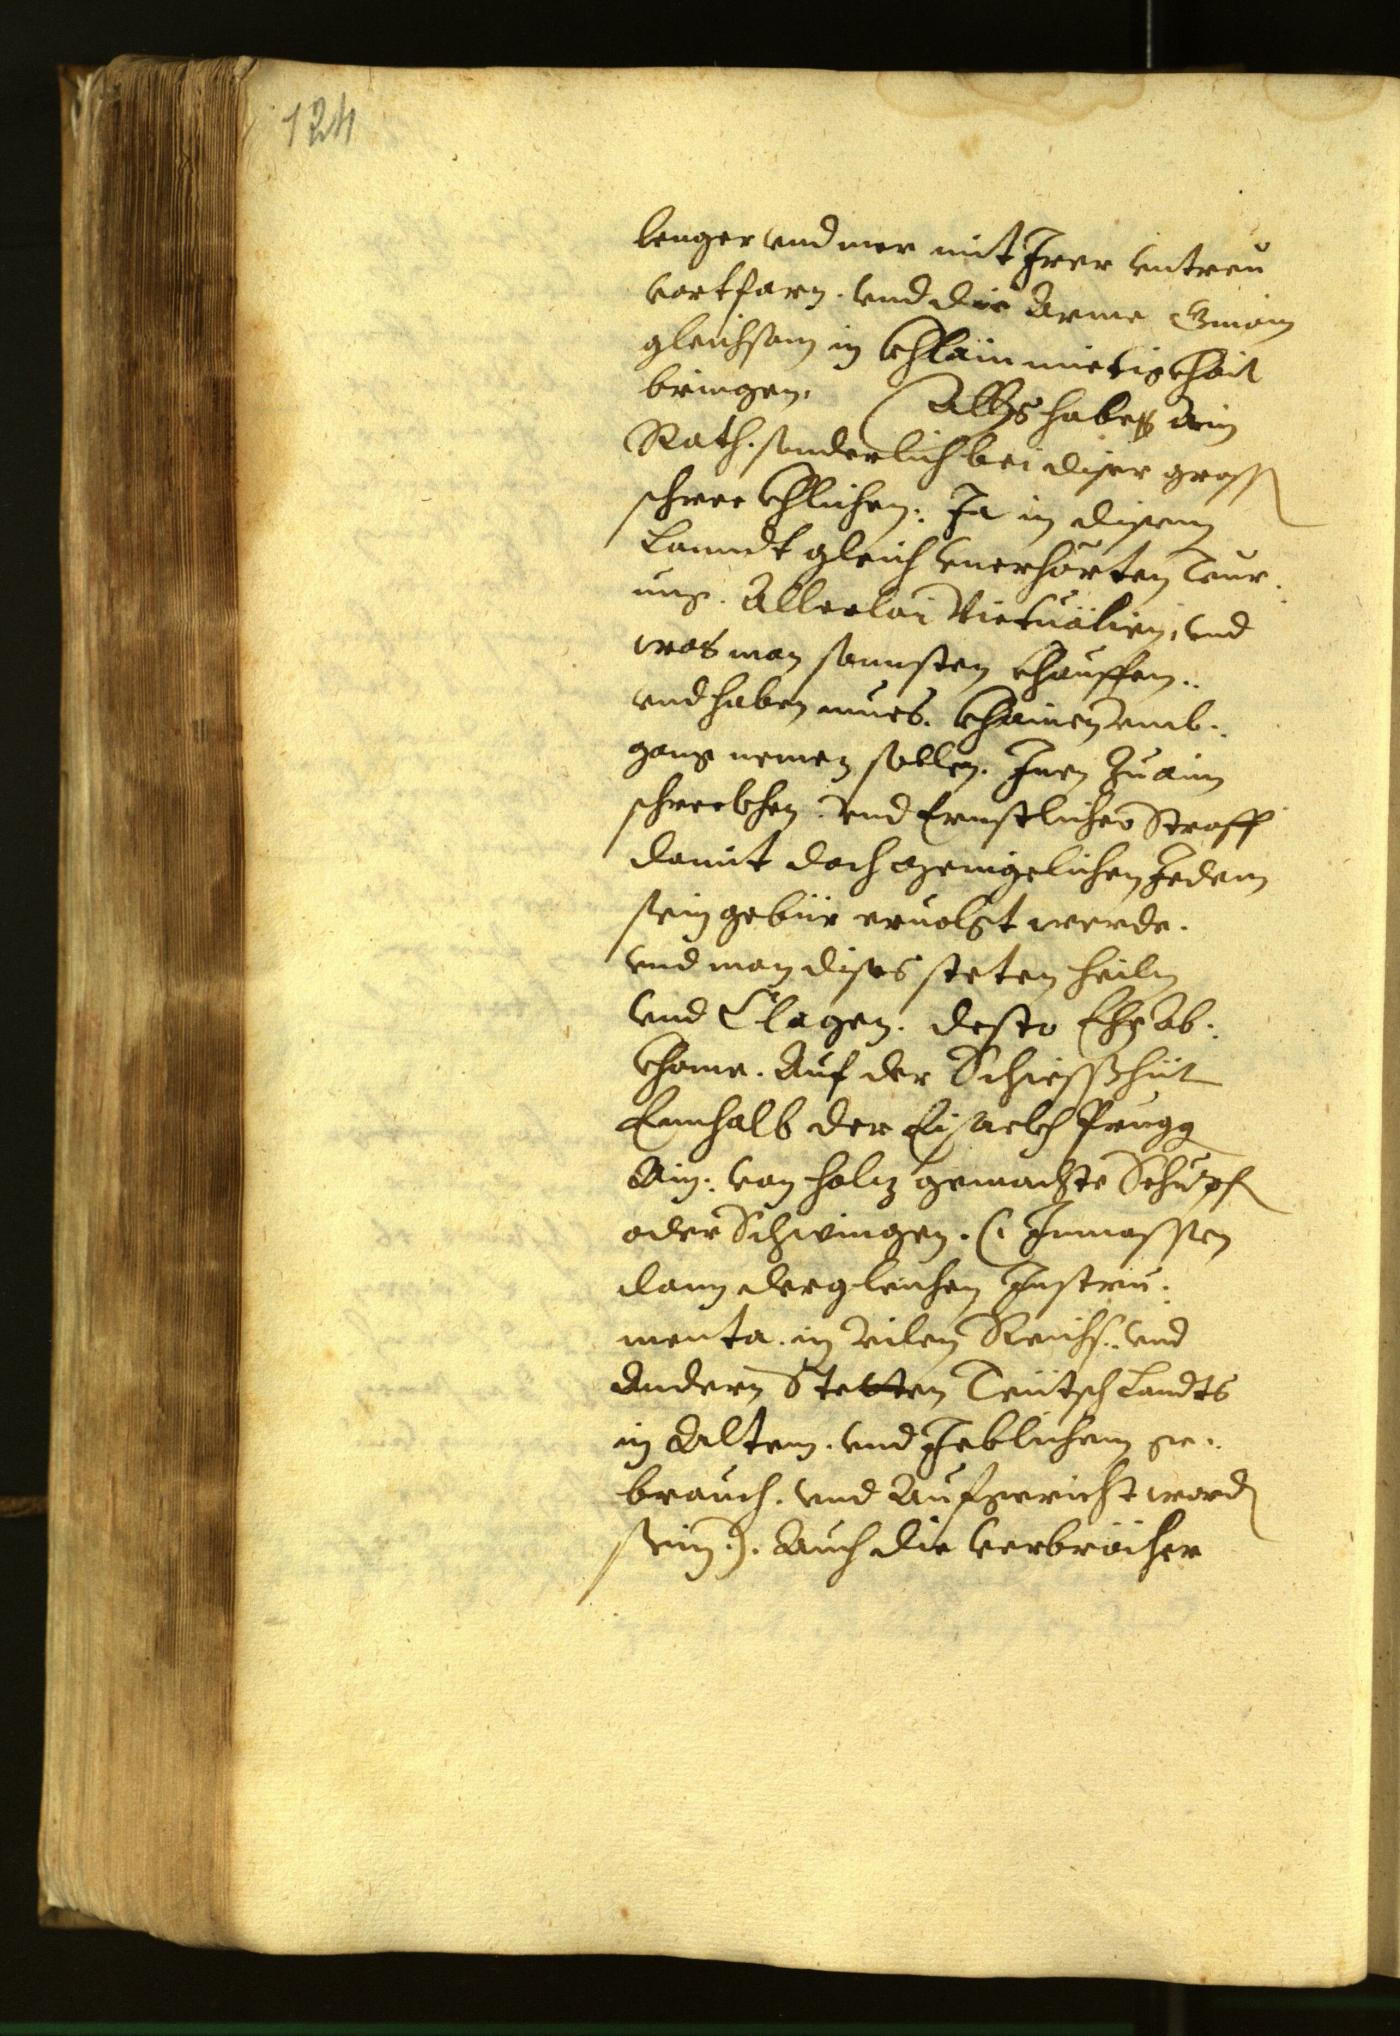 124
lenger vnd mer mit Irer vntreu
vortfarn. vnd die Arme Gmain
gleichsam in Khlainmietigkhait
bringen. Alls habe ein
Rath. sonderlich bei diser gross
schreckhlichen: Ja in disem
Lanndt gleich vnerhörten Teur.
ung. Allerlai Victualien, vnd
was man sonnsten khauffen.
vnd haben mues. khainen vmb:
gang nemen sollen. Inen zu aim
schreckhen. vnd Ernstlicher Straff
damit doch Jedem
sein gebür eruolgt werde.
vnd man dises steten heiln
vnd Clagen. desto Ehe ab:
khome. Auf der Schiesshüt
Ennhalb der Eisackh Prugg
Ain: von holz gemachte Schupf
oder Schwingen. (: Inmassen
dann dergleichen Instru:
menta. in vilen Reichs: vnd
Andern Stetten Teütsch Landts
in Altem. vnd Yeblichem ge:
brauch. vnd Aufgericht word
sein:). Auch die verbrächer